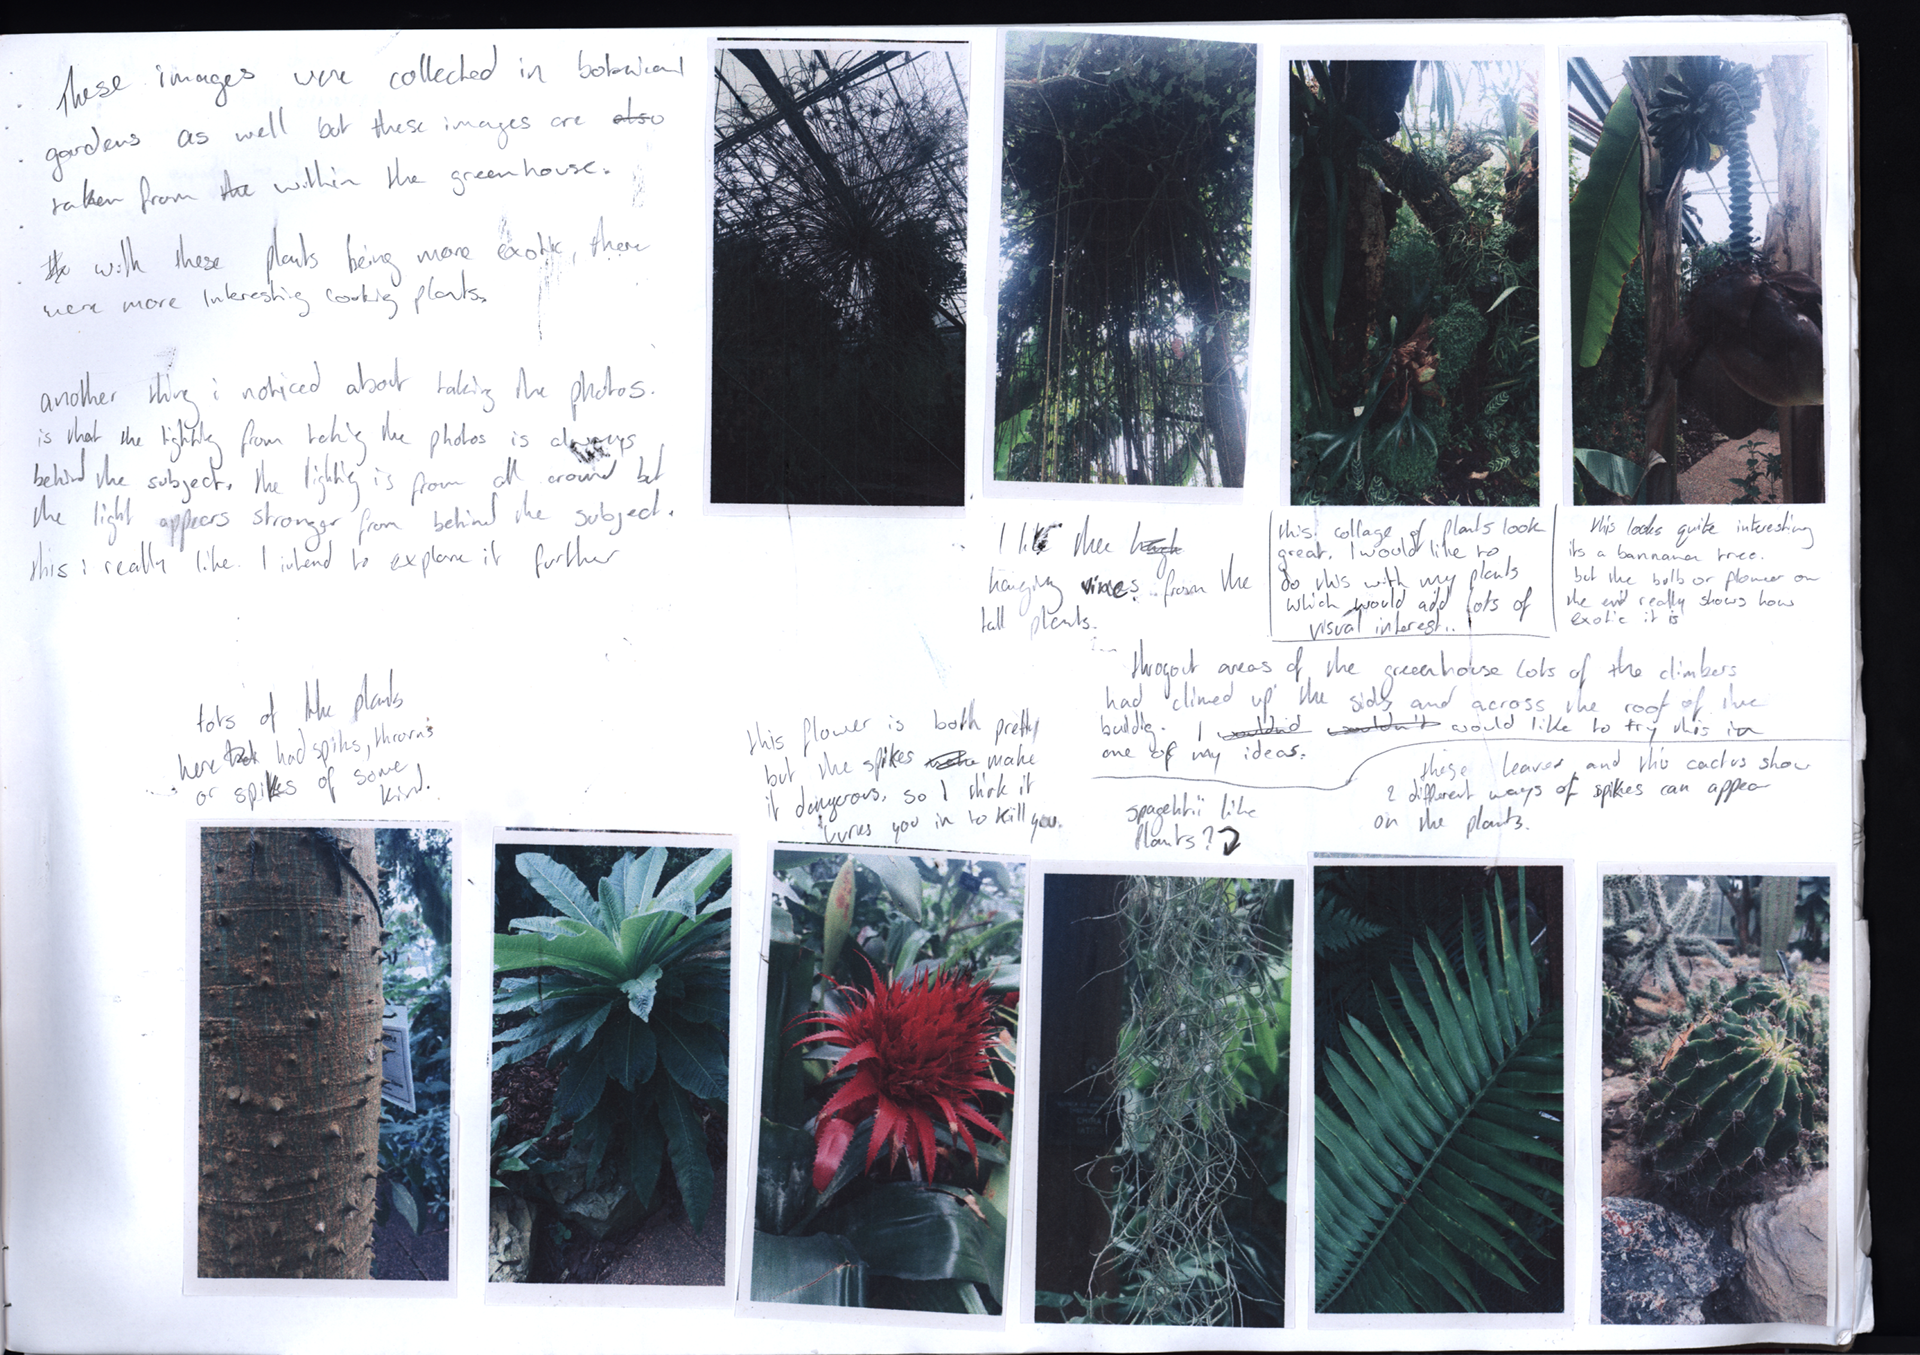 These images were collected in botanical
gardens as well but these images are also
taken from the within the greenhouse.
with these plants being more exotic, there
were more interesting looking plants.
another thing i noticed about taking the photos.
is that the lightig from takig the photos is always
behind the subject. the lightig is from all around but
the light appears stronger from behind the subject.
this i really like. I intend to explore it further
I like thee
hanging vines. from the
tall plants.
this collage of plants look
great. I would like to
do this with my plants
which would add lots of
visual interest..
this looks quite interesting
its a bannana tree.
but the bulb or flower on
the end really shows how
exotic it is
througout areas of the greenhouse lots of the climbers
had climed up the sides and across the roof of the
buildig. I wouldn't would like to try this in
one of my ideas.
lots of the plants
here had spiks, thorns
or spikes of some
kind.
this flower is both pretty
but the spikes make make
it dangerous. so I think it
lures you in to kill you.
spagehtii like
plants?
these leaves and this cactus show
2 different ways of spikes can appear
on the plants.